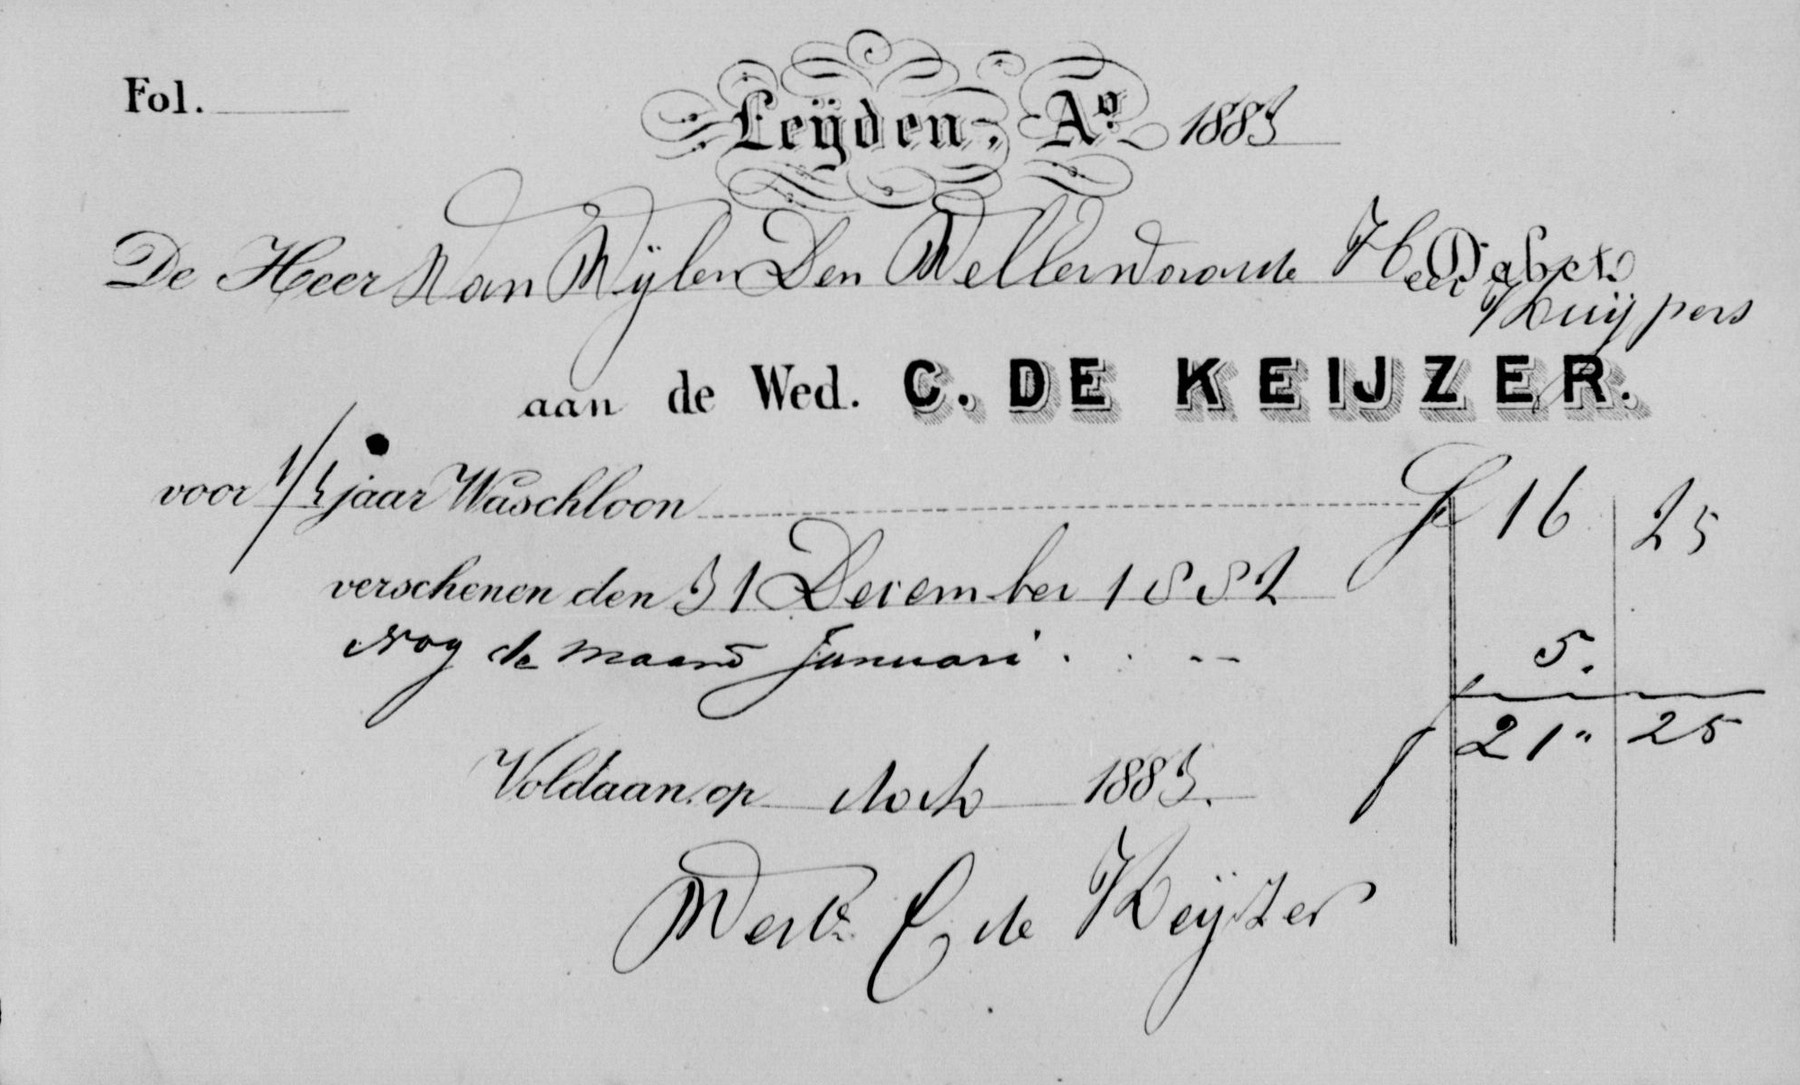 Fol.
Leijden, Ao. 1883
De Heer Van Wijlen Den Wellerwaarde Heer Debet.
Kuijpers
aan de Wed. C. DE KEIJZER.
voor 1/2 jaar Waschloon f 16 25
verschenen den 31 December 1882
Nog de maand Januari . . -- 5.
f 21" 25
Voldaan op dato 1883.
Wed. C de Keijzer